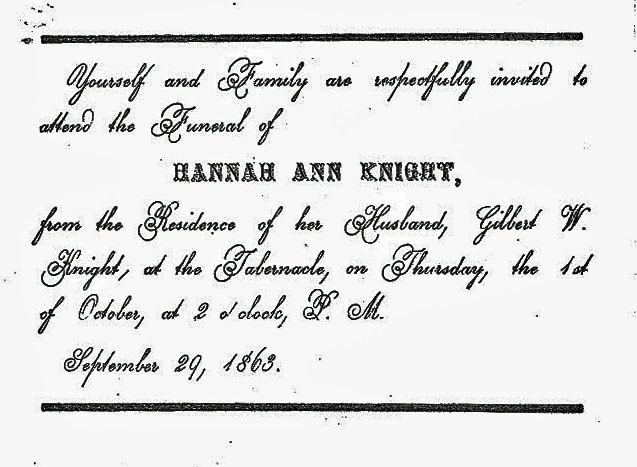 Yourself and Family are respectfully invited to
attend the Funeral of
HANNAH ANN KNIGHT,
from the Residence of her Husband, Gilbert W.
Knight, at the Tabernacle, on Thursday, the 1st
of October, at 2 o'clock, P. M.
September 29, 1863.